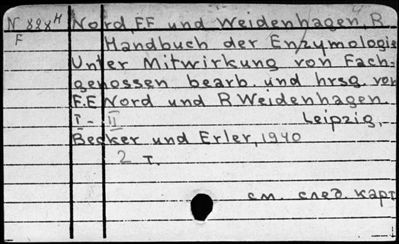 N 828 H Nord, F.F und Weidenhagen, R.
F Handbuch der Enzymologie
Unter Mitwirkung von Fach-
genossen bearb. und hrsg. von
F.F Nord und R. Weidenhagen.
I - II Leipzig,
Becker und Erler, 1940
2 т.
см. след. карт